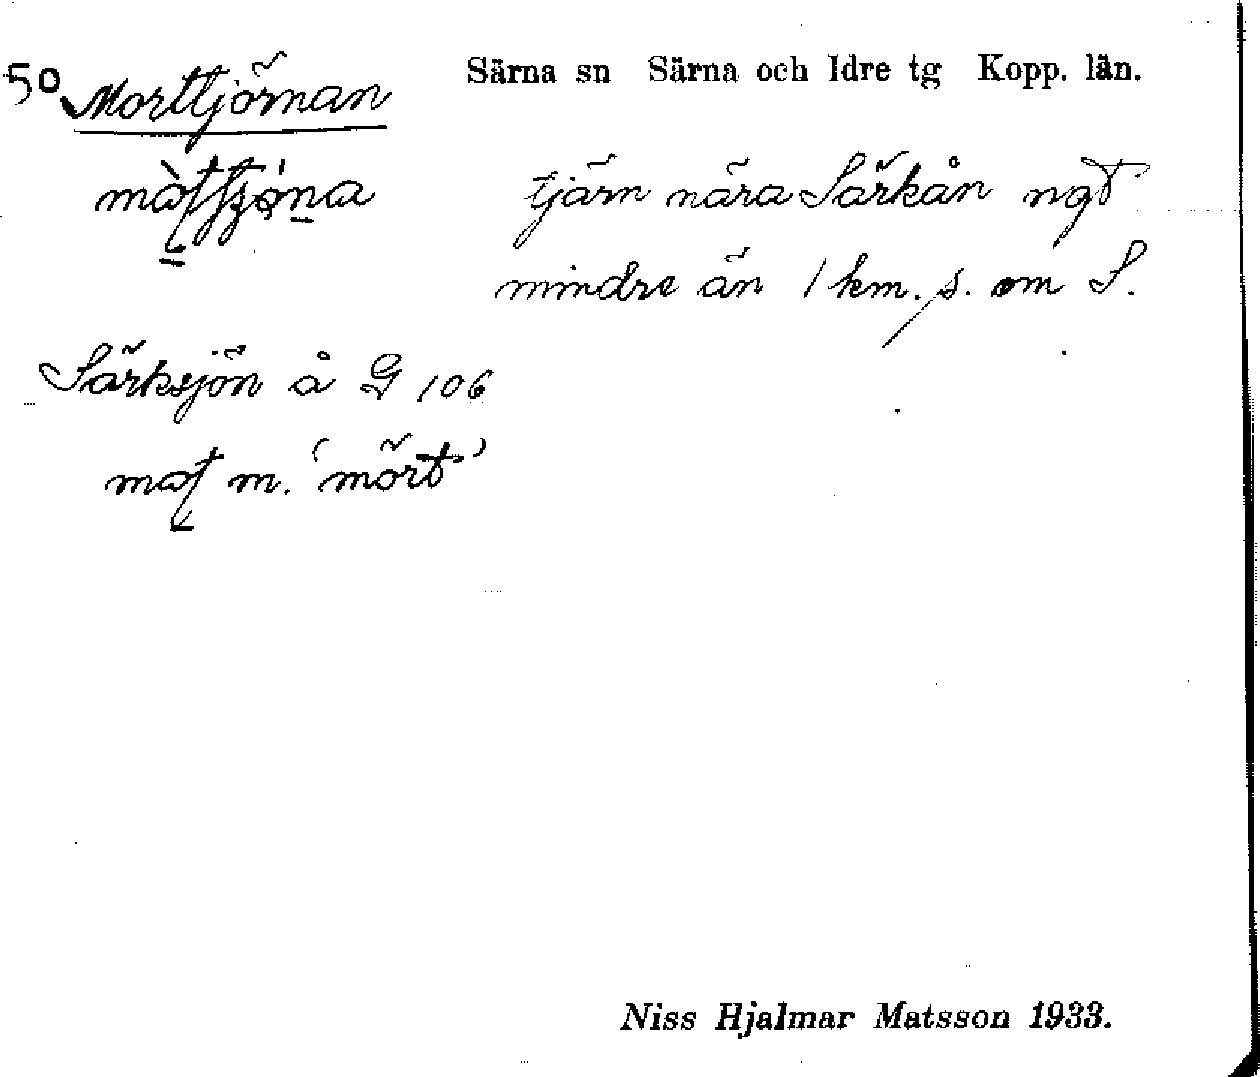 50 Morttjörnan
Särna sn Särna och Idre tg Kopp. län.
tjärn nära Särkån ngt
mindre än 1 km. s. om S.
Särksjön å G 106
m. 'mört'
Niss Hjalmar Matsson 1933.